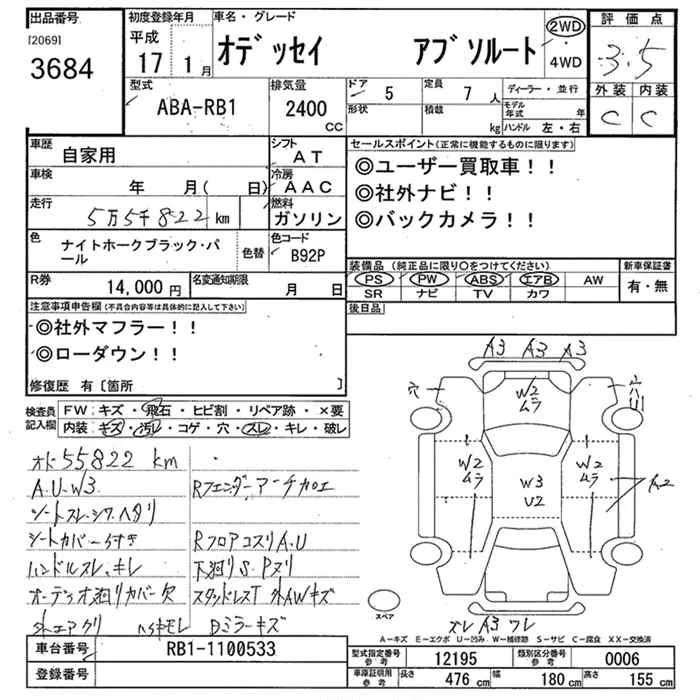 出品番号
[2069]
3684
初度登録年月
平成
17 1月
車名・グレード
オデッセイ アブソルート
2WD
・4WD
評価点
3.5
外装 内装
C C
型式
ABA-RB1
排気量
2400
CC
ドア
5
形状
定員
7 人
積載
kg
ディーラー・並行
モデル年式 年
ハンドル 左・右
車歴
自家用
シフト
AT
車検
年 月( 日)
冷房
AAC
走行
5万5千822 km
燃料
ガソリン
色
ナイトホークブラック・パール
色替
色コード
B92P
R券
14,000 円
名変通知期限
月 日
セールスポイント(正常に機能するものに限ります)
◎ユーザー買取車!!
◎社外ナビ!!
◎バックカメラ!!
装備品 (純正品に限り○をつけてください)
PS PW ABS エアB AW
SR ナビ TV カワ
新車保証書
有・無
後日品
注意事項申告欄(不具合内容等は具体的に記入して下さい)
◎社外マフラー!!
◎ローダウン!!
修復歴 有[箇所 ]
検査員記入欄
FW: キズ・飛石・ヒビ割・リペア跡・×要
内装: キズ・汚レ・コゲ・穴・スレ・キレ・破レ
オド55822 km
A.U・W3
シートスレ・シワ・ヘタリ
シートカバー付き
ハンドルスレ、キレ
オーディオ廻りカバー欠
外エアクリ
Rフェンダーアーチカロエ
RフロアコスリA.U
下廻りS・Pヌリ
スタッドレスT 外AWキズ
Dミラーキズ
A3 A3 A3
穴
W2
ムラ
W2
ムラ
W3
U2
W2
ムラ
A2
ズレ A3 ワレ
スペア
A−キズ E−エクボ U−凹み W−補修跡 S−サビ C−腐食 XX−交換済
車台番号
RB1-1100533
登録番号
型式指定番号
参考
12195
類別区分番号
参考
0006
車庫証明用
参考
長さ 476 cm 幅 180 cm 高さ 155 cm